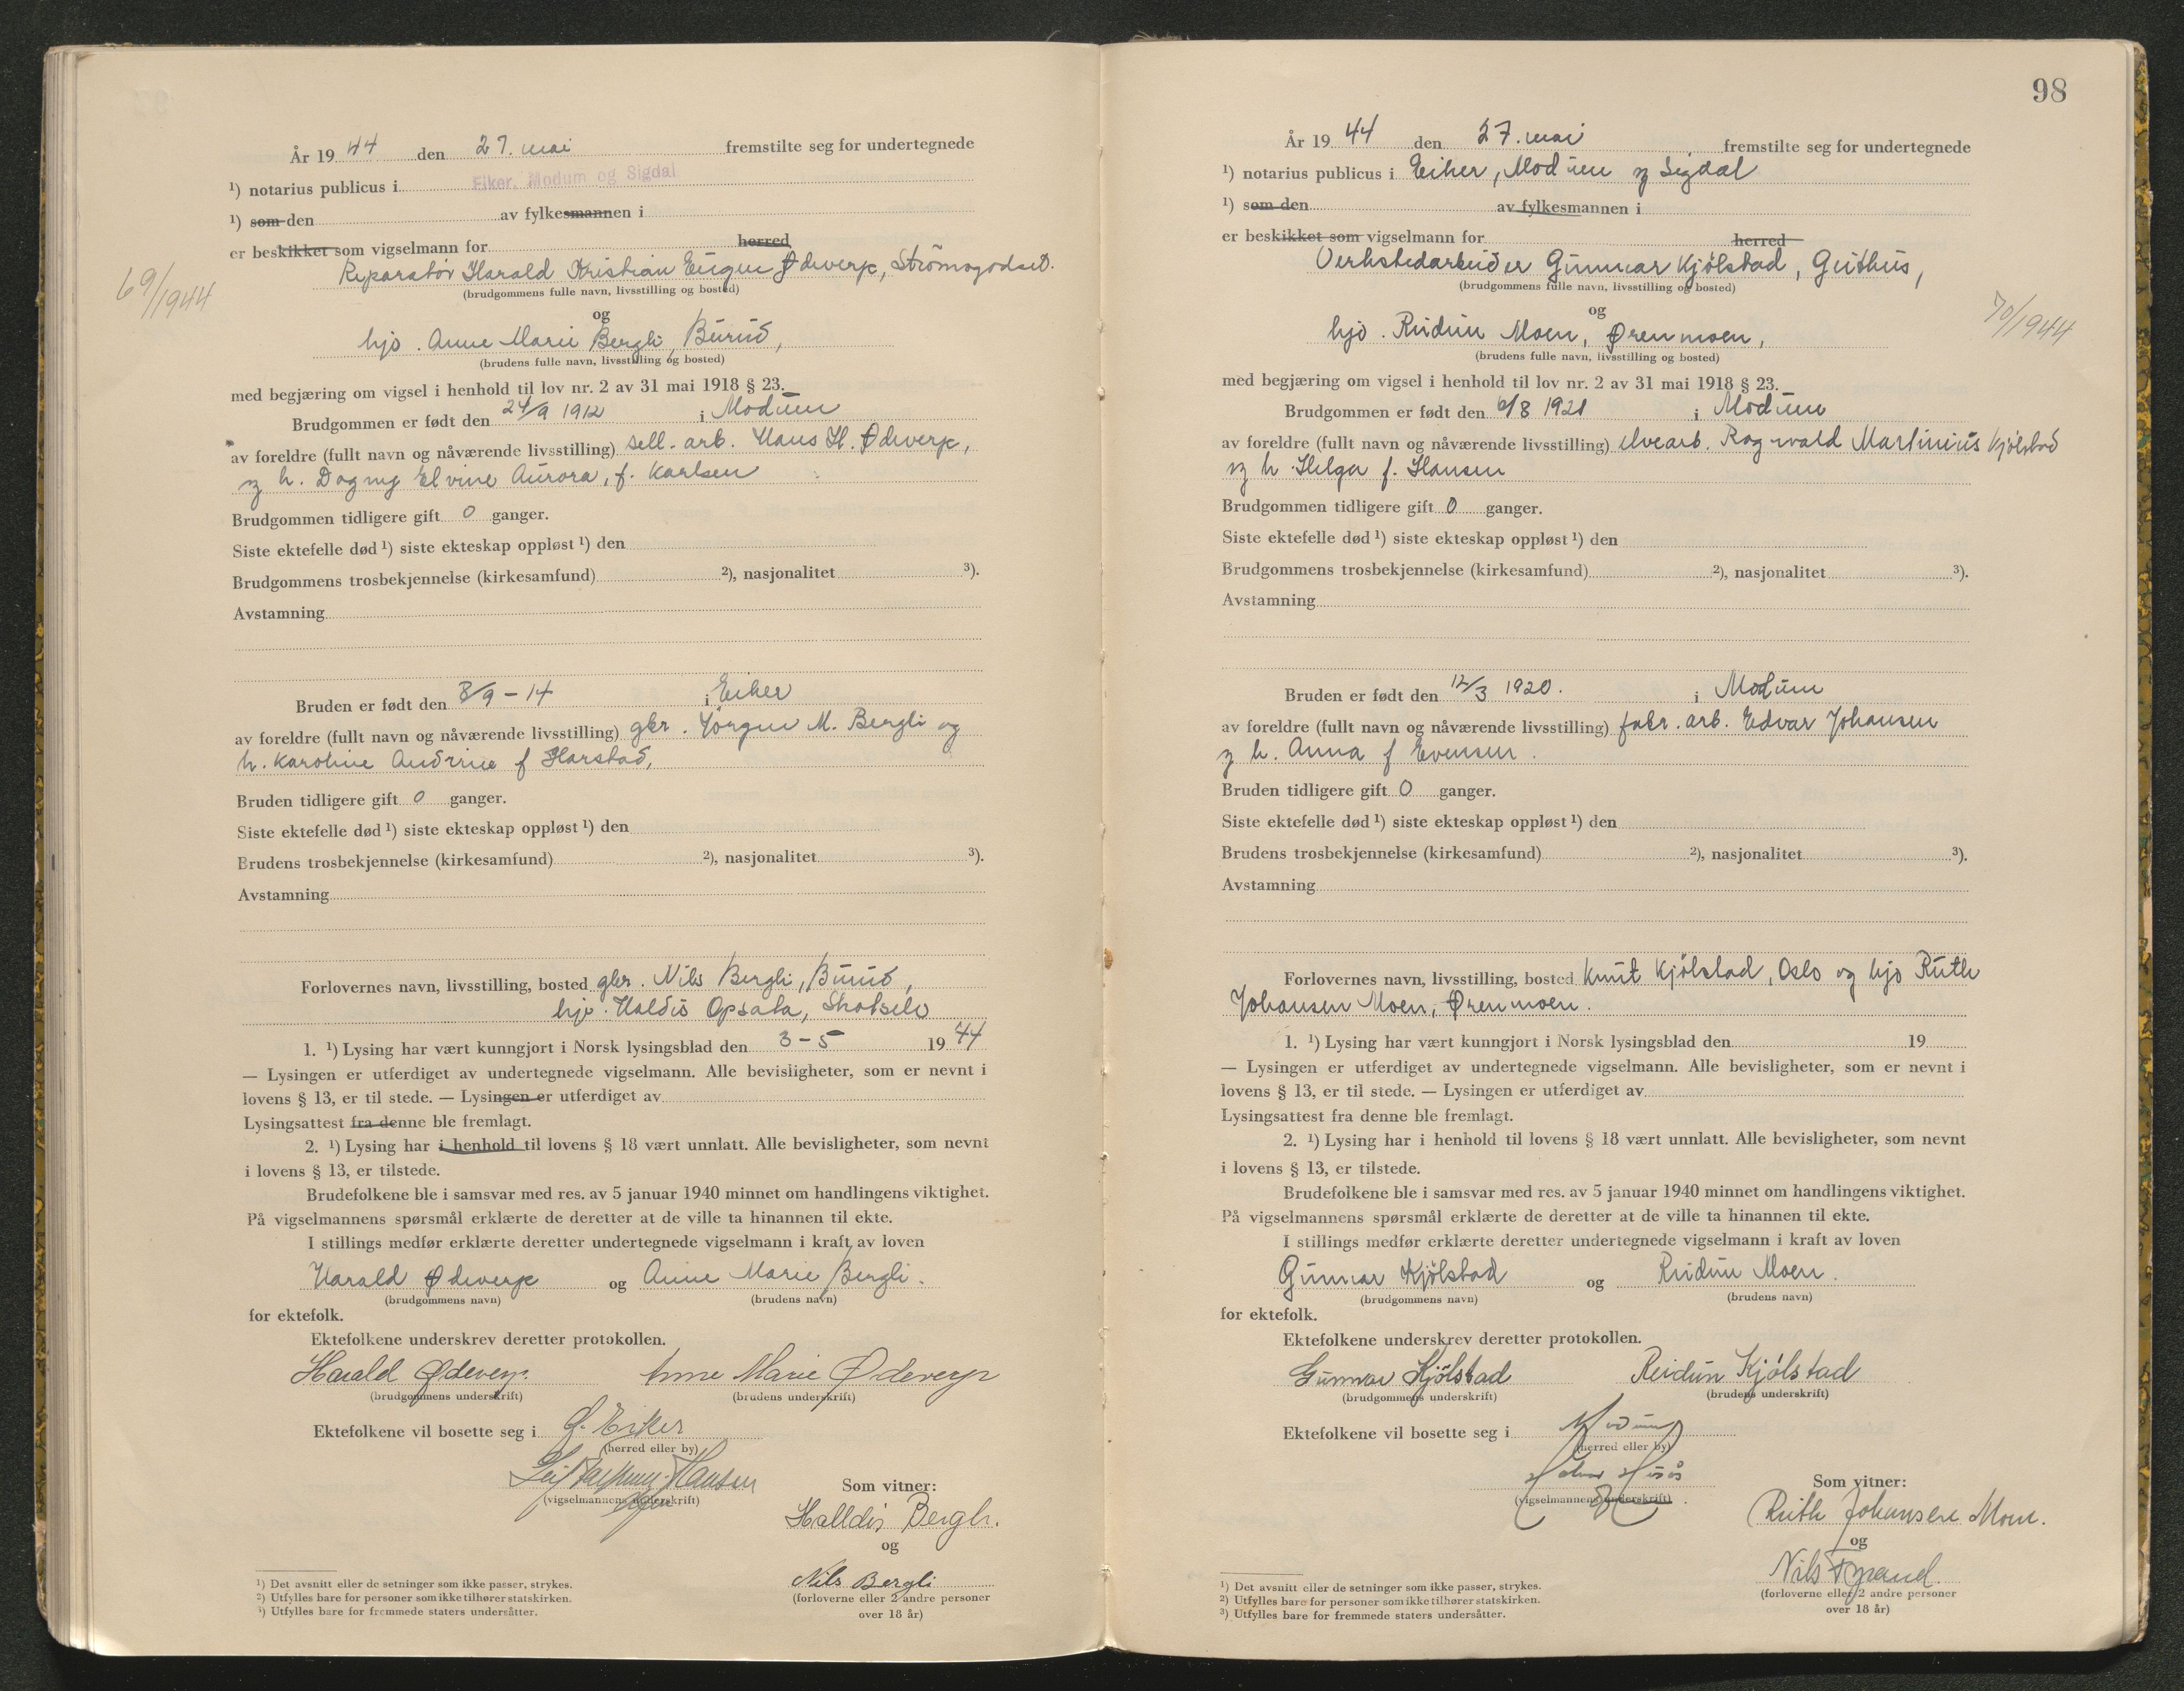 År 19 44 den 27. mai fremstilte seg for undertegnede
¹) notarius publicus i Eiker, Modum og Sigdal
¹) som den av fylkesmannen i
er beskikket som vigselmann for herred
Reparatør Harald Kristian Eugen Ødeverp, Strömsgodset.
(brudgommens fulle navn, livsstilling og bosted)
og
69/1944
hjo. Anne Marie Bergli, Burud,
(brudens fulle navn, livsstilling og bosted)
med begjæring om vigsel i henhold til lov nr. 2 av 31 mai 1918 § 23.
Brudgommen er født den 24/9 1912 i Modum
av foreldre (fullt navn og nåværende livsstilling) sell. arb. Hans H. Ødeverp,
og h. Dagny Elvine Aurora, f. Karlsen
Brudgommen tidligere gift 0 ganger.
Siste ektefelle død ¹) siste ekteskap oppløst ¹) den
Brudgommens trosbekjennelse (kirkesamfund) ²), nasjonalitet ³).
Avstamning
Bruden er født den 8/9 - 14 i Eiker
av foreldre (fullt navn og nåværende livsstilling) gbr. Jörgen M. Bergli og
h. Karoline Andrine f Harstad,
Bruden tidligere gift 0 ganger.
Siste ektefelle død ¹) siste ekteskap oppløst ¹) den
Brudens trosbekjennelse (kirkesamfund) ²), nasjonalitet ³).
Avstamning
Forlovernes navn, livsstilling, bosted gbr. Nils Bergli, Burud,
hjo. Haldis Opsata, Skotselv
1. ¹) Lysing har vært kunngjort i Norsk lysingsblad den 3 - 5 19 44
— Lysingen er utferdiget av undertegnede vigselmann. Alle bevisligheter, som er nevnt i
lovens § 13, er til stede. — Lysingen er utferdiget av
Lysingsattest fra denne ble fremlagt.
2. ¹) Lysing har i henhold til lovens § 18 vært unnlatt. Alle bevisligheter, som nevnt
i lovens § 13, er tilstede.
Brudefolkene ble i samsvar med res. av 5 januar 1940 minnet om handlingens viktighet.
På vigselmannens spørsmål erklærte de deretter at de ville ta hinannen til ekte.
I stillings medfør erklærte deretter undertegnede vigselmann i kraft av loven
Harald Ødeverp og Anne Marie Bergli.
(brudgommens navn) (brudens navn)
for ektefolk.
Ektefolkene underskrev deretter protokollen.
Harald Ødeverp. Anne Marie Ødeverp
(brudgommens underskrift) (brudens underskrift)
Ektefolkene vil bosette seg i Ø. Eiker
(herred eller by)
Leif Hansen
(vigselmannens underskrift)
Som vitner:
Halldis Bergli.
og
Nils Bergli
(forloverne eller 2 andre personer
over 18 år)
¹) Det avsnitt eller de setninger som ikke passer, strykes.
²) Utfylles bare for personer som ikke tilhører statskirken.
³) Utfylles bare for fremmede staters undersåtter.
98
År 19 44 den 27. mai fremstilte seg for undertegnede
¹) notarius publicus i Eiker, Modum og Sigdal
¹) som den av fylkesmannen i
er beskikket som vigselmann for herred
Verkstedarbeider Gunnar Kjölstad, Geithus,
(brudgommens fulle navn, livsstilling og bosted)
og
70/1944
hjo. Reidun Moen, Ørenmoen,
(brudens fulle navn, livsstilling og bosted)
med begjæring om vigsel i henhold til lov nr. 2 av 31 mai 1918 § 23.
Brudgommen er født den 6/8 1921 i Modum
av foreldre (fullt navn og nåværende livsstilling) elvearb. Ragnvald Martinius Kjölstad
og h. Helga f. Hansen
Brudgommen tidligere gift 0 ganger.
Siste ektefelle død ¹) siste ekteskap oppløst ¹) den
Brudgommens trosbekjennelse (kirkesamfund) ²), nasjonalitet ³).
Avstamning
Bruden er født den 12/3 1920. i Modum
av foreldre (fullt navn og nåværende livsstilling) fabr. arb. Edvar Johansen
og h. Anna f Evensen.
Bruden tidligere gift 0 ganger.
Siste ektefelle død ¹) siste ekteskap oppløst ¹) den
Brudens trosbekjennelse (kirkesamfund) ²), nasjonalitet ³).
Avstamning
Forlovernes navn, livsstilling, bosted Knut Kjölstad, Oslo og hjo Ruth
Johansen Moen, Ørenmoen.
1. ¹) Lysing har vært kunngjort i Norsk lysingsblad den 19
— Lysingen er utferdiget av undertegnede vigselmann. Alle bevisligheter, som er nevnt i
lovens § 13, er til stede. — Lysingen er utferdiget av
Lysingsattest fra denne ble fremlagt.
2. ¹) Lysing har i henhold til lovens § 18 vært unnlatt. Alle bevisligheter, som nevnt
i lovens § 13, er tilstede.
Brudefolkene ble i samsvar med res. av 5 januar 1940 minnet om handlingens viktighet.
På vigselmannens spørsmål erklærte de deretter at de ville ta hinannen til ekte.
I stillings medfør erklærte deretter undertegnede vigselmann i kraft av loven
Gunnar Kjölstad og Reidun Moen.
(brudgommens navn) (brudens navn)
for ektefolk.
Ektefolkene underskrev deretter protokollen.
Gunnar Kjölstad Reidun Kjölstad
(brudgommens underskrift) (brudens underskrift)
Ektefolkene vil bosette seg i Modum
(herred eller by)
(vigselmannens underskrift)
Som vitner:
Ruth Johansen Moen.
og
Nils
(forloverne eller 2 andre personer
over 18 år)
¹) Det avsnitt eller de setninger som ikke passer, strykes.
²) Utfylles bare for personer som ikke tilhører statskirken.
³) Utfylles bare for fremmede staters undersåtter.